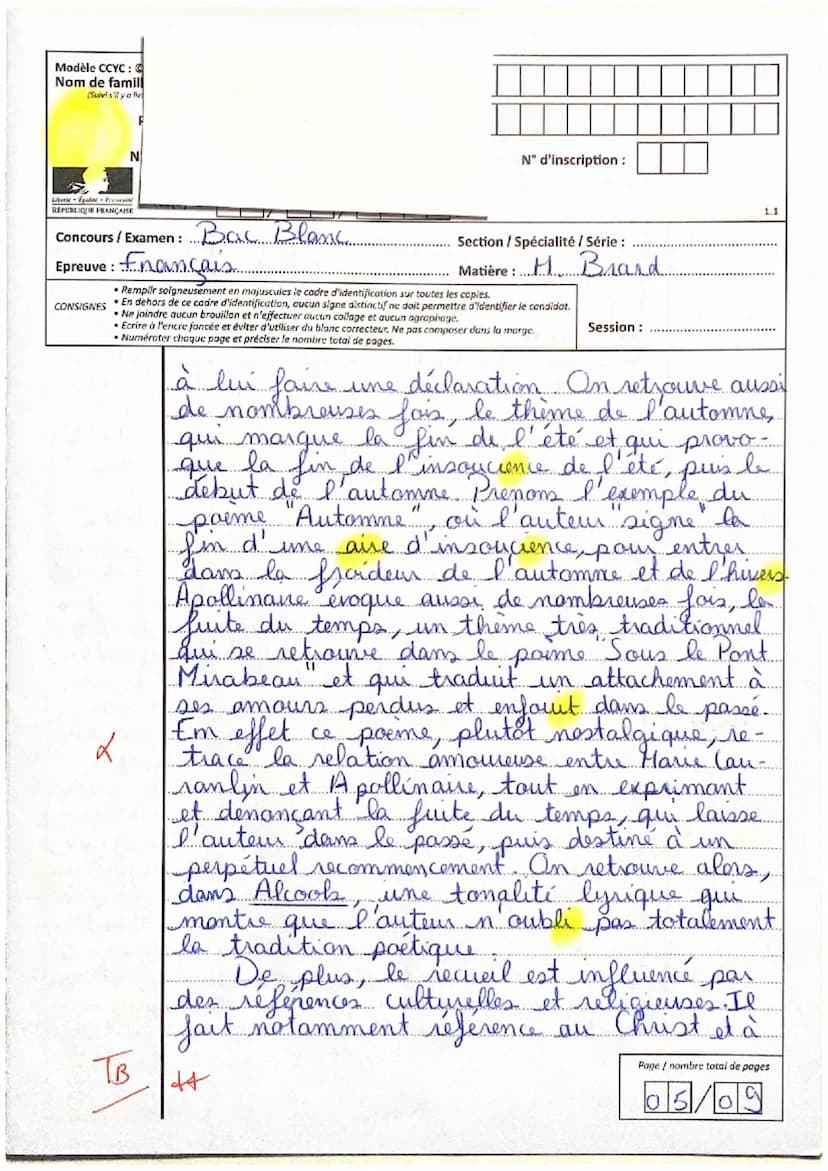 Modèle CCYC : ©
Nom de famill
(Suivi s'il y a lie
N
Liberté • Égalité • Fraternité
RÉPUBLIQUE FRANÇAISE
N° d'inscription :
1.1
Concours / Examen : Bac Blanc Section / Spécialité / Série :
Epreuve : Français Matière : M. Brard
CONSIGNES
• Remplir soigneusement en majuscules le cadre d'identification sur toutes les copies.
• En dehors de ce cadre d'identification, aucun signe distinctif ne doit permettre d'identifier le candidat.
• Ne joindre aucun brouillon et n'effectuer aucun collage et aucun agraphage.
• Ecrire à l'encre foncée et éviter d'utiliser du blanc correcteur. Ne pas composer dans la marge.
• Numéroter chaque page et préciser le nombre total de pages.
Session :
à lui faire une déclaration. On retrouve aussi
de nombreuses fois, le thème de l'automne,
qui marque la fin de l'été et qui provo-
que la fin de l'insoucience de l'été, puis le
début de l'automne. Prenons l'exemple du
poème "Automne", où l'auteur "signe" la
fin d'une aire d'insoucience, pour entrer
dans la froideur de l'automne et de l'hivers.
Apollinaire évoque aussi, de nombreuses fois, la
fuite du temps, un thème très traditionnel
qui se retrouve dans le poème "Sous le Pont
Mirabeau" et qui traduit un attachement à
ses amours perdus et enfouit dans le passé.
En effet ce poème, plutôt nostalgique, re-
trace la relation amoureuse entre Marie Lau-
ranlin et Apollinaire, tout en exprimant
et dénonçant la fuite du temps, qui laisse
l'auteur dans le passé, puis destiné à un
perpétuel recommencement. On retrouve alors,
dans Alcools, une tonalité lyrique qui
montre que l'auteur n'oubli pas totalement
la tradition poétique.
De plus, le recueil est influencé par
des références culturelles et religieuses. Il
fait notamment référence au Christ et à
TB ++
Page / nombre total de pages
05/09